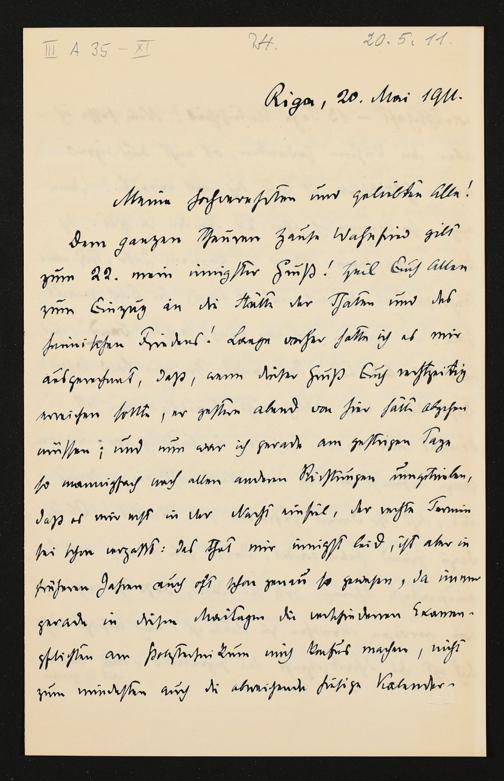 III A 35 – XI
24.
20.5.11.
Riga, 20. Mai 1911.
Meine hochverehrten und geliebten Alle!
Dem ganzen theuren Hause Wahnfried gilt
zum 22. mein innigster Gruß! Heil Euch Allen
zum Einzug in die Stätte der Thaten und des
heimischen Friedens! Lange vorher hatte ich es mir
ausgerechnet, daß, wenn dieser Gruß Euch rechtzeitig
erreichen sollte, er gestern abend von hier hätte abgehen
müssen; und nun war ich gerade am gestrigen Tage
so mannigfach nach allen anderen Richtungen umgetrieben,
daß es mir erst in der Nacht einfiel, der rechte Termin
sei schon verpaßt: das thut mir innigst leid, ist aber in
früheren Jahren auch oft schon genau so gewesen, da immer
gerade in diesen Maitagen die verschiedenen Examen-
pflichten am Polytechnikum mich konfus machen, nicht
zum mindesten auch die abweichende hiesige Kalender-